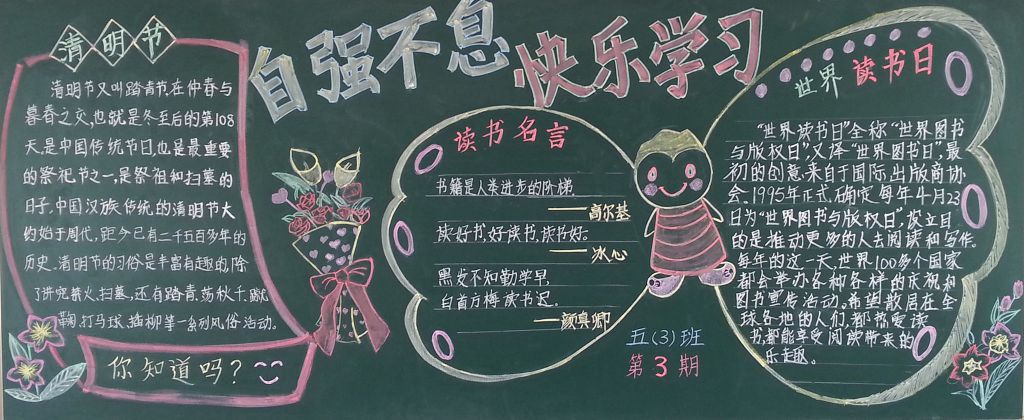 自强不息 快乐学习
清明节
清明节又叫踏青节,在仲春与
暮春之交,也就是冬至后的第108
天,是中国传统节日,也是最重要
的祭祀节之一,是祭祖和扫墓的
日子,中国汉族传统的清明节大
约始于周代,距今已有二千五百多年的
历史。清明节的习俗是丰富有趣的,除
了讲究禁火、扫墓,还有踏青、荡秋千、蹴
鞠、打马球、插柳等一系列风俗活动。
你知道吗?
读书名言
书籍是人类进步的阶梯.
——高尔基
读好书,好读书,读书好。
——冰心
黑发不知勤学早,
白首方悔读书迟.
——颜真卿
五(3)班
第3期
世界读书日
“世界读书日”全称“世界图书
与版权日”,又译“世界图书日”,最
初的创意来自于国际出版商协
会.1995年正式确定每年4月23
日为“世界图书与版权日”,设立目
的是推动更多的人去阅读和写作。
每年的这一天,世界100多个国家
都会举办各种各样的庆祝和
图书宣传活动。希望散居在全
球各地的人们,都能爱读
书,都能享受阅读带来的
乐趣。